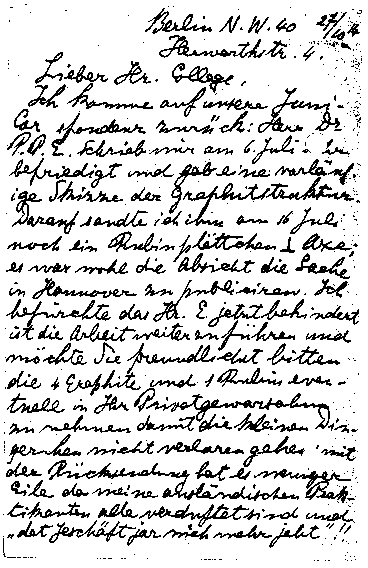 Berlin N.W. 40 27/10 14
Herwarthstr. 4.
Lieber Hr. College,
Ich komme auf unsere Juni-
Cor spondenz zurück: Herr Dr
P.P.E. schrieb mir am 6 Juli - Er
befriedigt und gab eine vorläuf-
ige Skizze der Graphitstruktur.
Darauf sandte ich ihm am 16 Juli
noch ein Rubinplättchen ⊥ Axe;
es war wohl die Absicht die Sache
in Hannover zu publicieren. Ich
befürchte das Hr. E jetzt behindert
ist die Arbeit weiterzuführen und
möchte Sie freundlichst bitten
die 4 Graphite und 1 Rubin even-
tuell in Ihr Privatgewarsahm
zu nehmen damit die kleinen Din-
gerchen nicht verloren gehen; mit
der Rücksendung hat es weniger
Eile da meine ausländischen Prak-
tikanten alle verduftet sind und
„det Jeschäft jar nich mehr jeht"!!